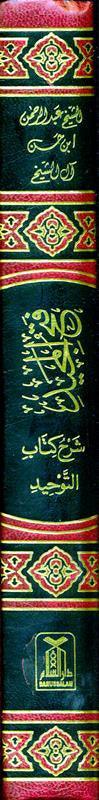 الشيخ عبد الرحمن
ابن حسن
آل الشيخ
فتح المجيد
شرح كتاب
التوحيد
دار السلام
DARUSSALAM